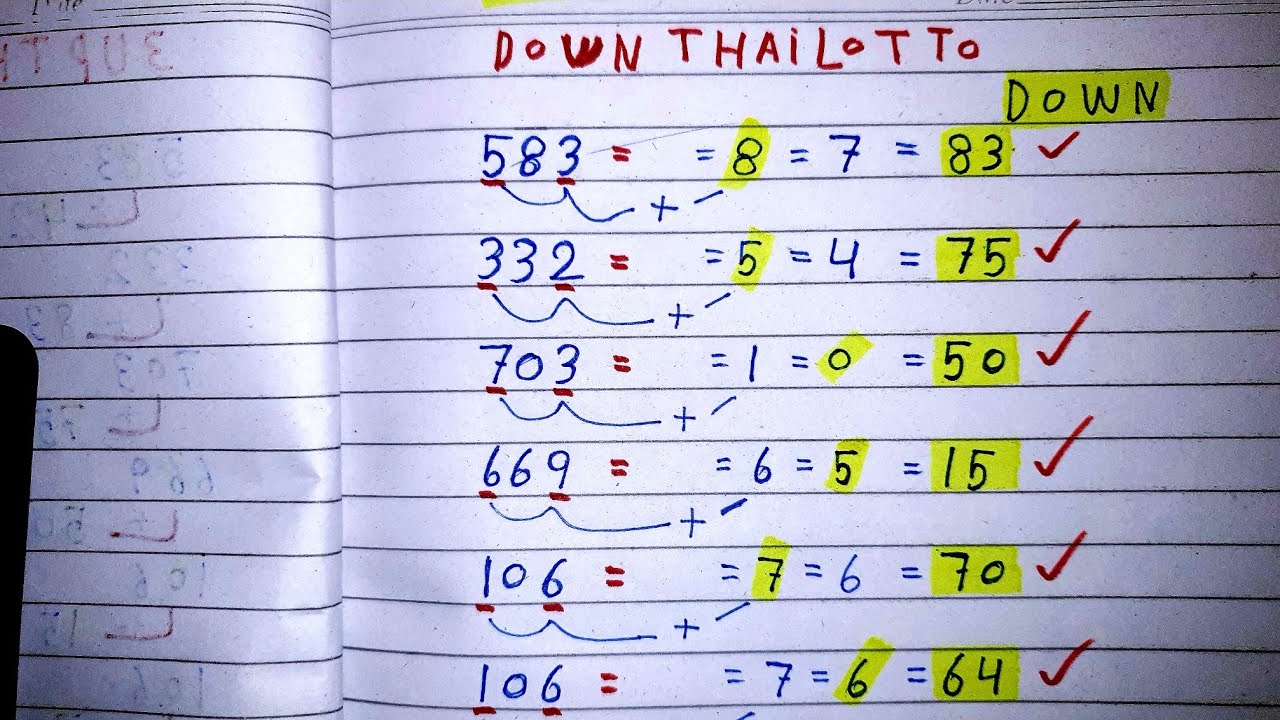 DOWN THAILOTTO
DOWN
583 = = 8 = 7 = 83 ✓
+
332 = = 5 = 4 = 75 ✓
+
703 = = 1 = 0 = 50 ✓
+
669 = = 6 = 5 = 15 ✓
+
106 = = 7 = 6 = 70 ✓
+
106 = = 7 = 6 = 64 ✓